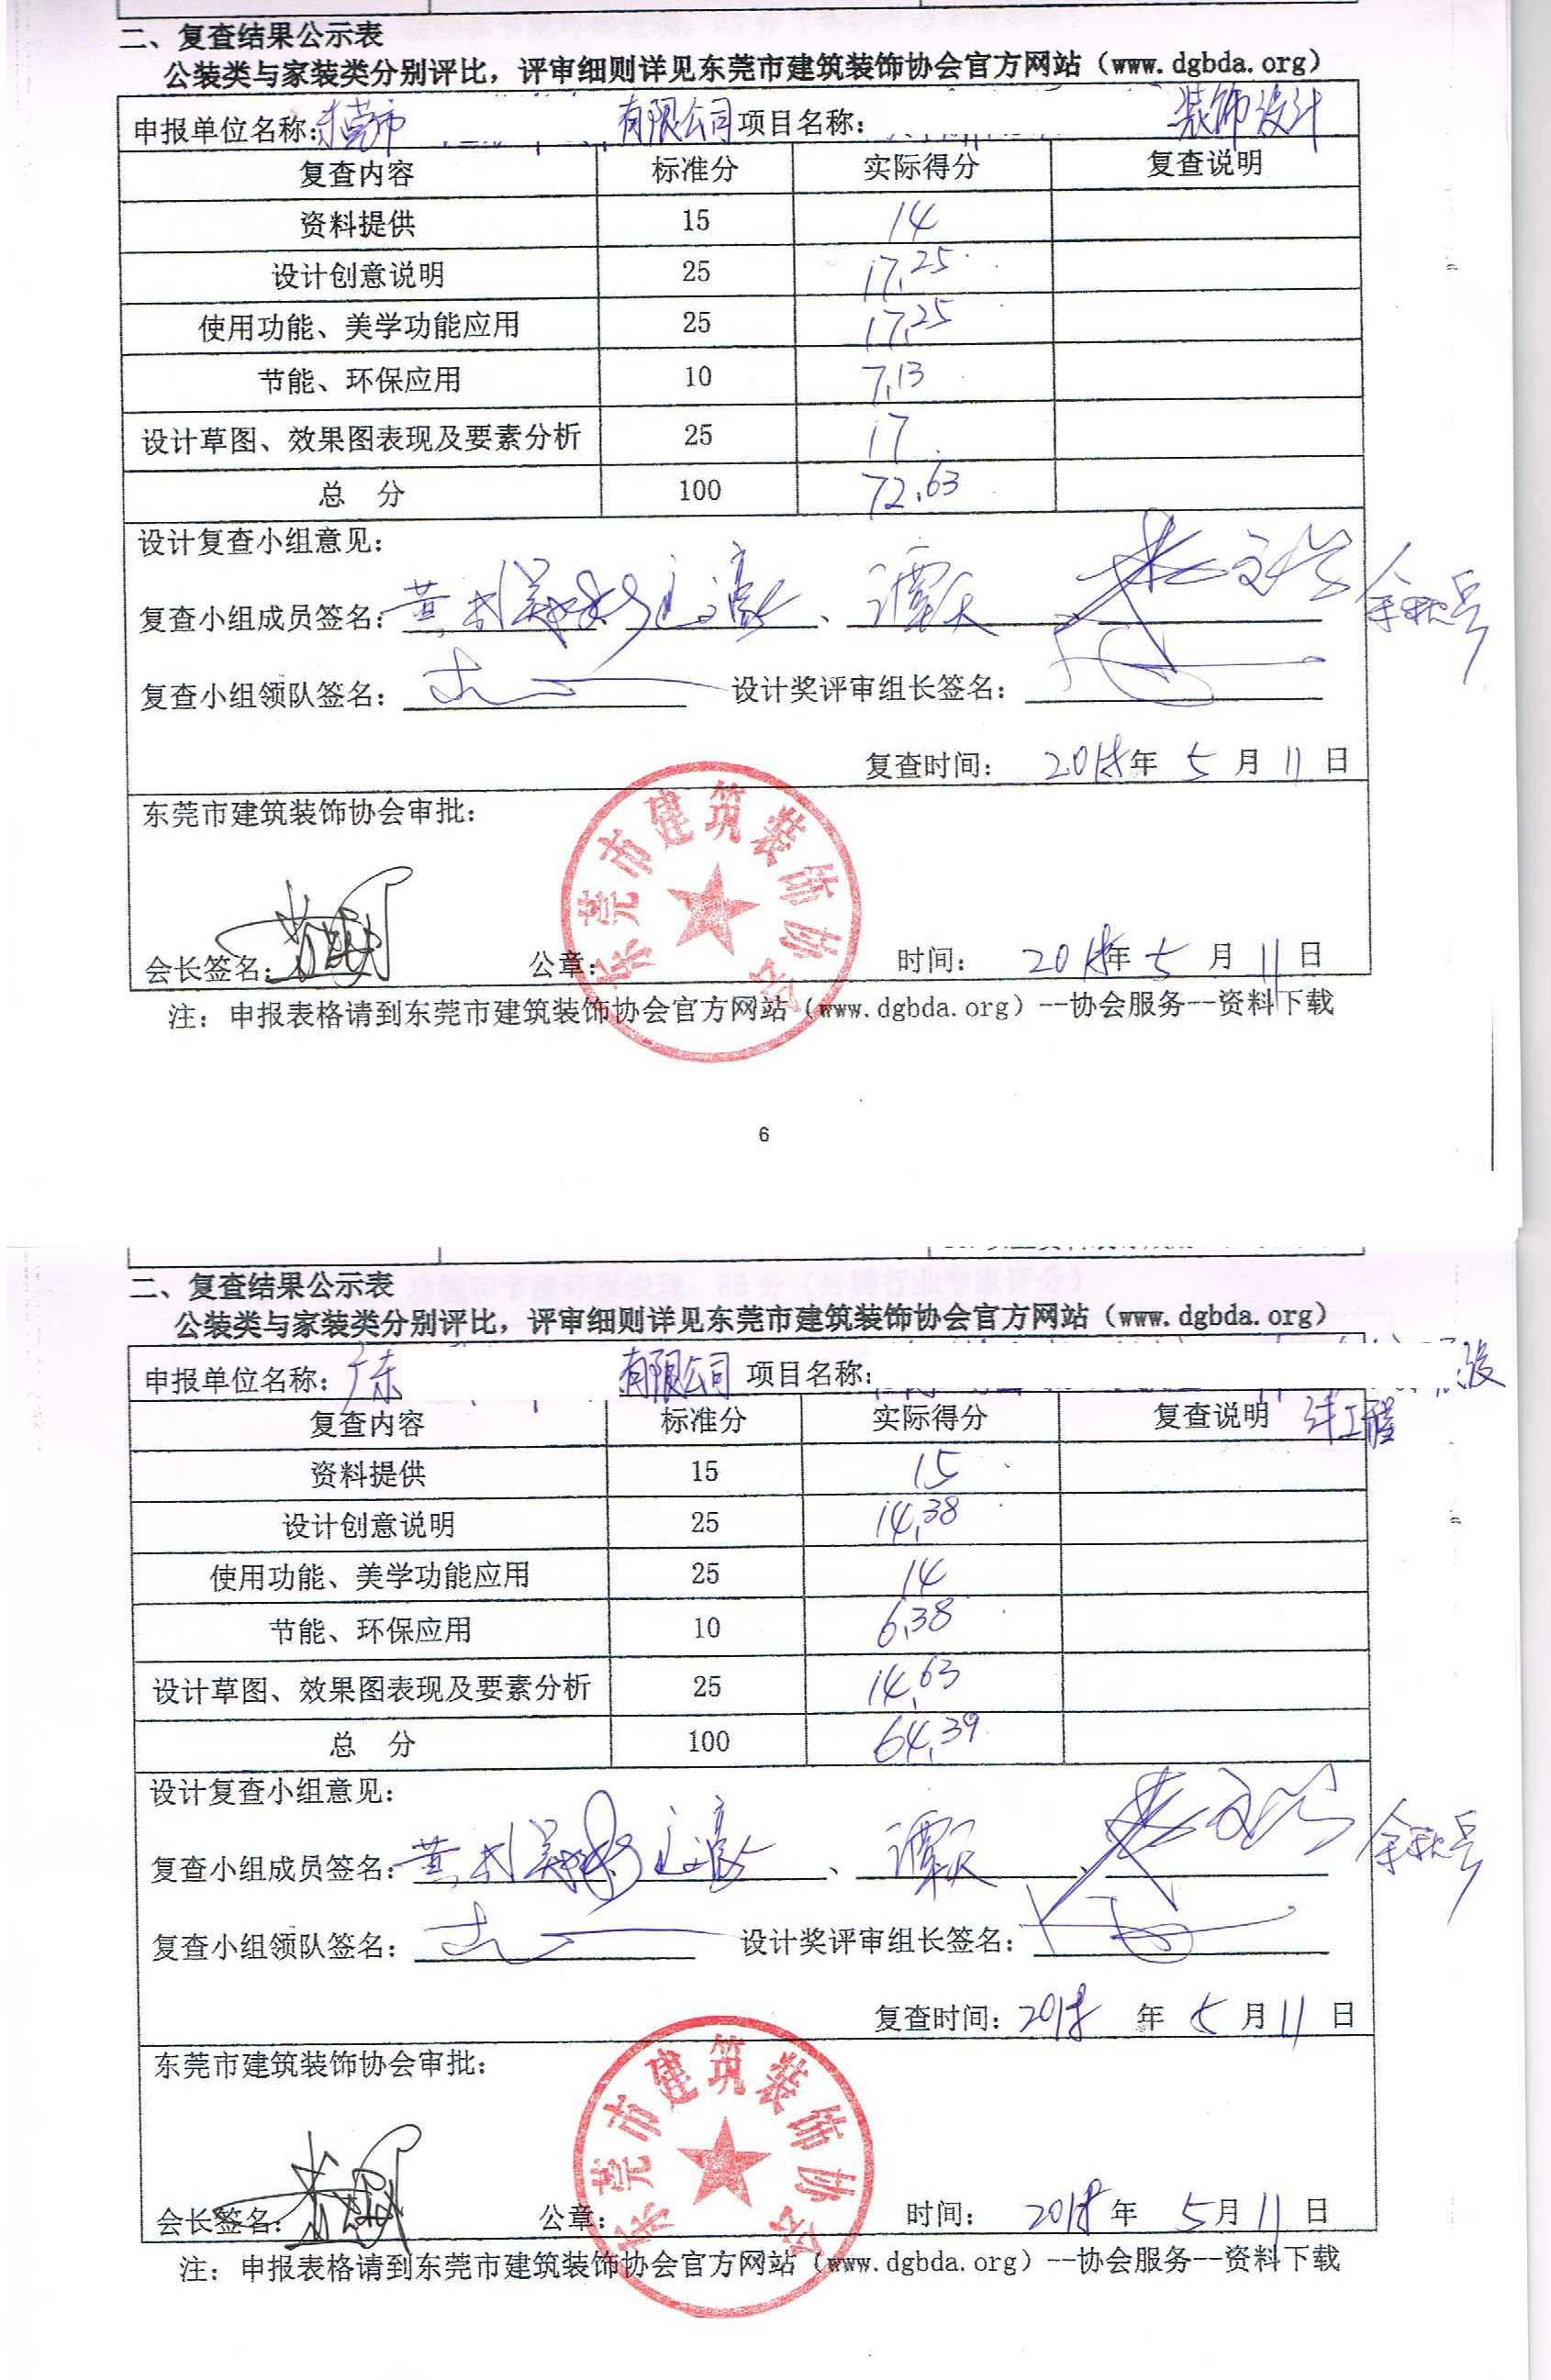 二、复查结果公示表
公装类与家装类分别评比，评审细则详见东莞市建筑装饰协会官方网站（www.dgbda.org）
申报单位名称：东莞市 有限公司 项目名称： 装饰设计
复查内容 标准分 实际得分 复查说明
资料提供 15 14
设计创意说明 25 17.25
使用功能、美学功能应用 25 17.25
节能、环保应用 10 7.13
设计草图、效果图表现及要素分析 25 17
总 分 100 72.63
设计复查小组意见：
复查小组成员签名： 、 、谭天 、
复查小组领队签名： 设计奖评审组长签名：
复查时间： 2018年 5 月 11 日
东莞市建筑装饰协会审批：
东莞市建筑装饰协会
会长签名： 公章： 时间： 2018年 5 月 11 日
注：申报表格请到东莞市建筑装饰协会官方网站（www.dgbda.org）--协会服务--资料下载
6
二、复查结果公示表
公装类与家装类分别评比，评审细则详见东莞市建筑装饰协会官方网站（www.dgbda.org）
申报单位名称：广东 有限公司 项目名称： 设
计工程
复查内容 标准分 实际得分 复查说明
资料提供 15 15
设计创意说明 25 14.38
使用功能、美学功能应用 25 14
节能、环保应用 10 6.38
设计草图、效果图表现及要素分析 25 14.63
总 分 100 64.39
设计复查小组意见：
复查小组成员签名： 、 、谭天 、
复查小组领队签名： 设计奖评审组长签名：
复查时间：2018 年 5 月 11 日
东莞市建筑装饰协会审批：
东莞市建筑装饰协会
会长签名： 公章： 时间： 2018 年 5月 11 日
注：申报表格请到东莞市建筑装饰协会官方网站（www.dgbda.org）--协会服务--资料下载